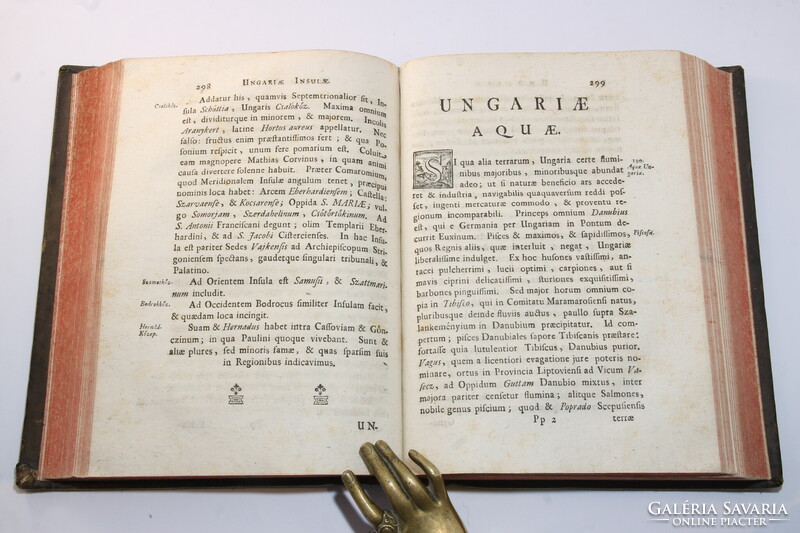 298 UNGARIÆ INSULÆ.
Csalokôz. Addatur his, quamvis Septemtrionalior sit, In-
sula Schüttia, Ungaris Csalokôz. Maxima omnium
est, dividiturque in minorem, & majorem. Incolis
Aranykert, latine Hortus aureus appellatur. Nec
falso: fructus enim præstantissimos fert; & qua Po-
sonium respicit, unum fere pomarium est. Coluit
eam magnopere Mathias Corvinus, in quam animi
causa divertere solenne habuit. Præter Comaromium,
quod Meridionalem Insulæ angulum tenet, præcipui
nominis loca habet: Arcem Eberhardiensem; Castella:
Szarvaense, & Kocsarense; Oppida S. MARIÆ; vul-
go Somorjam, Szerdahelinum, Csôtôrtôkinum. Ad
S. Antonii Franciscani degunt; olim Templarii Eber-
hardini, & ad S. Jacobi Cistercienses. In hac Insu-
la est pariter Sedes Vajkensis ad Archiepiscopum Stri-
goniensem spectans, gaudetque singulari tribunali, &
Palatino.
Ad Orientem Insula est Samusii, & Szattmari-
num includit.
Bodrokkôz. Ad Occidentem Bodrocus similiter Insulam facit,
& quædam loca incingit.
Hernád- Suam & Hernadus habet intra Cassoviam & Gôn-
Kôzep. czinum; in qua Paulini quoque vivebant. Sunt &
aliæ plures, sed minoris famæ, & quas sparsim suis
in Regionibus indicavimus.
UN-
299
UNGARIÆ
AQUÆ.
SI qua alia terrarum, Ungaria certe flumi-
nibus majoribus, minoribusque abundat Aquæ Un-
adeo; ut si naturæ beneficio ars accede- gariæ.
ret & industria, navigabilis quaquaversum reddi pos-
set, ingenti mercaturæ commodo, & proventu re-
gionum incomparabili. Princeps omnium Danubius
est, qui e Germania per Ungariam in Pontum de-
currit Euxinum. Pisces & maximos, & sapidissimos, Piscosæ.
quos Regnis aliis, quæ interluit, negat, Ungariæ
liberalissime indulget. Ex hoc husones vastissimi, an-
tacei pulcherrimi, lucii optimi, carpiones, aut si
mavis ciprini delicatissimi, sturiones exquisitissimi,
barbones pinguissimi. Sed major horum omnium co-
pia in Tibisco, qui in Comitatu Maramarosensi natus,
pluribusque deinde fluviis auctus, paullo supra Sza-
lankeményium in Danubium præcipitatur. Id com-
pertum; pisces Danubiales sapore Tibiscanis præstare:
fortasse quia lutulentior Tibiscus, Danubius purior.
Vagus, quem a licentiori evagatione jure poteris no-
minare, ortus in Provincia Liptoviensi ad Vicum Va-
secz, ad Oppidum Guttam Danubio mixtus, inter
majora pariter censetur flumina; alitque Salmones,
nobile genus piscium; quod & Poprado Scepusiensis
Pp 2 terræ
GALÉRIA SAVARIA
ONLINE PIACTÉR